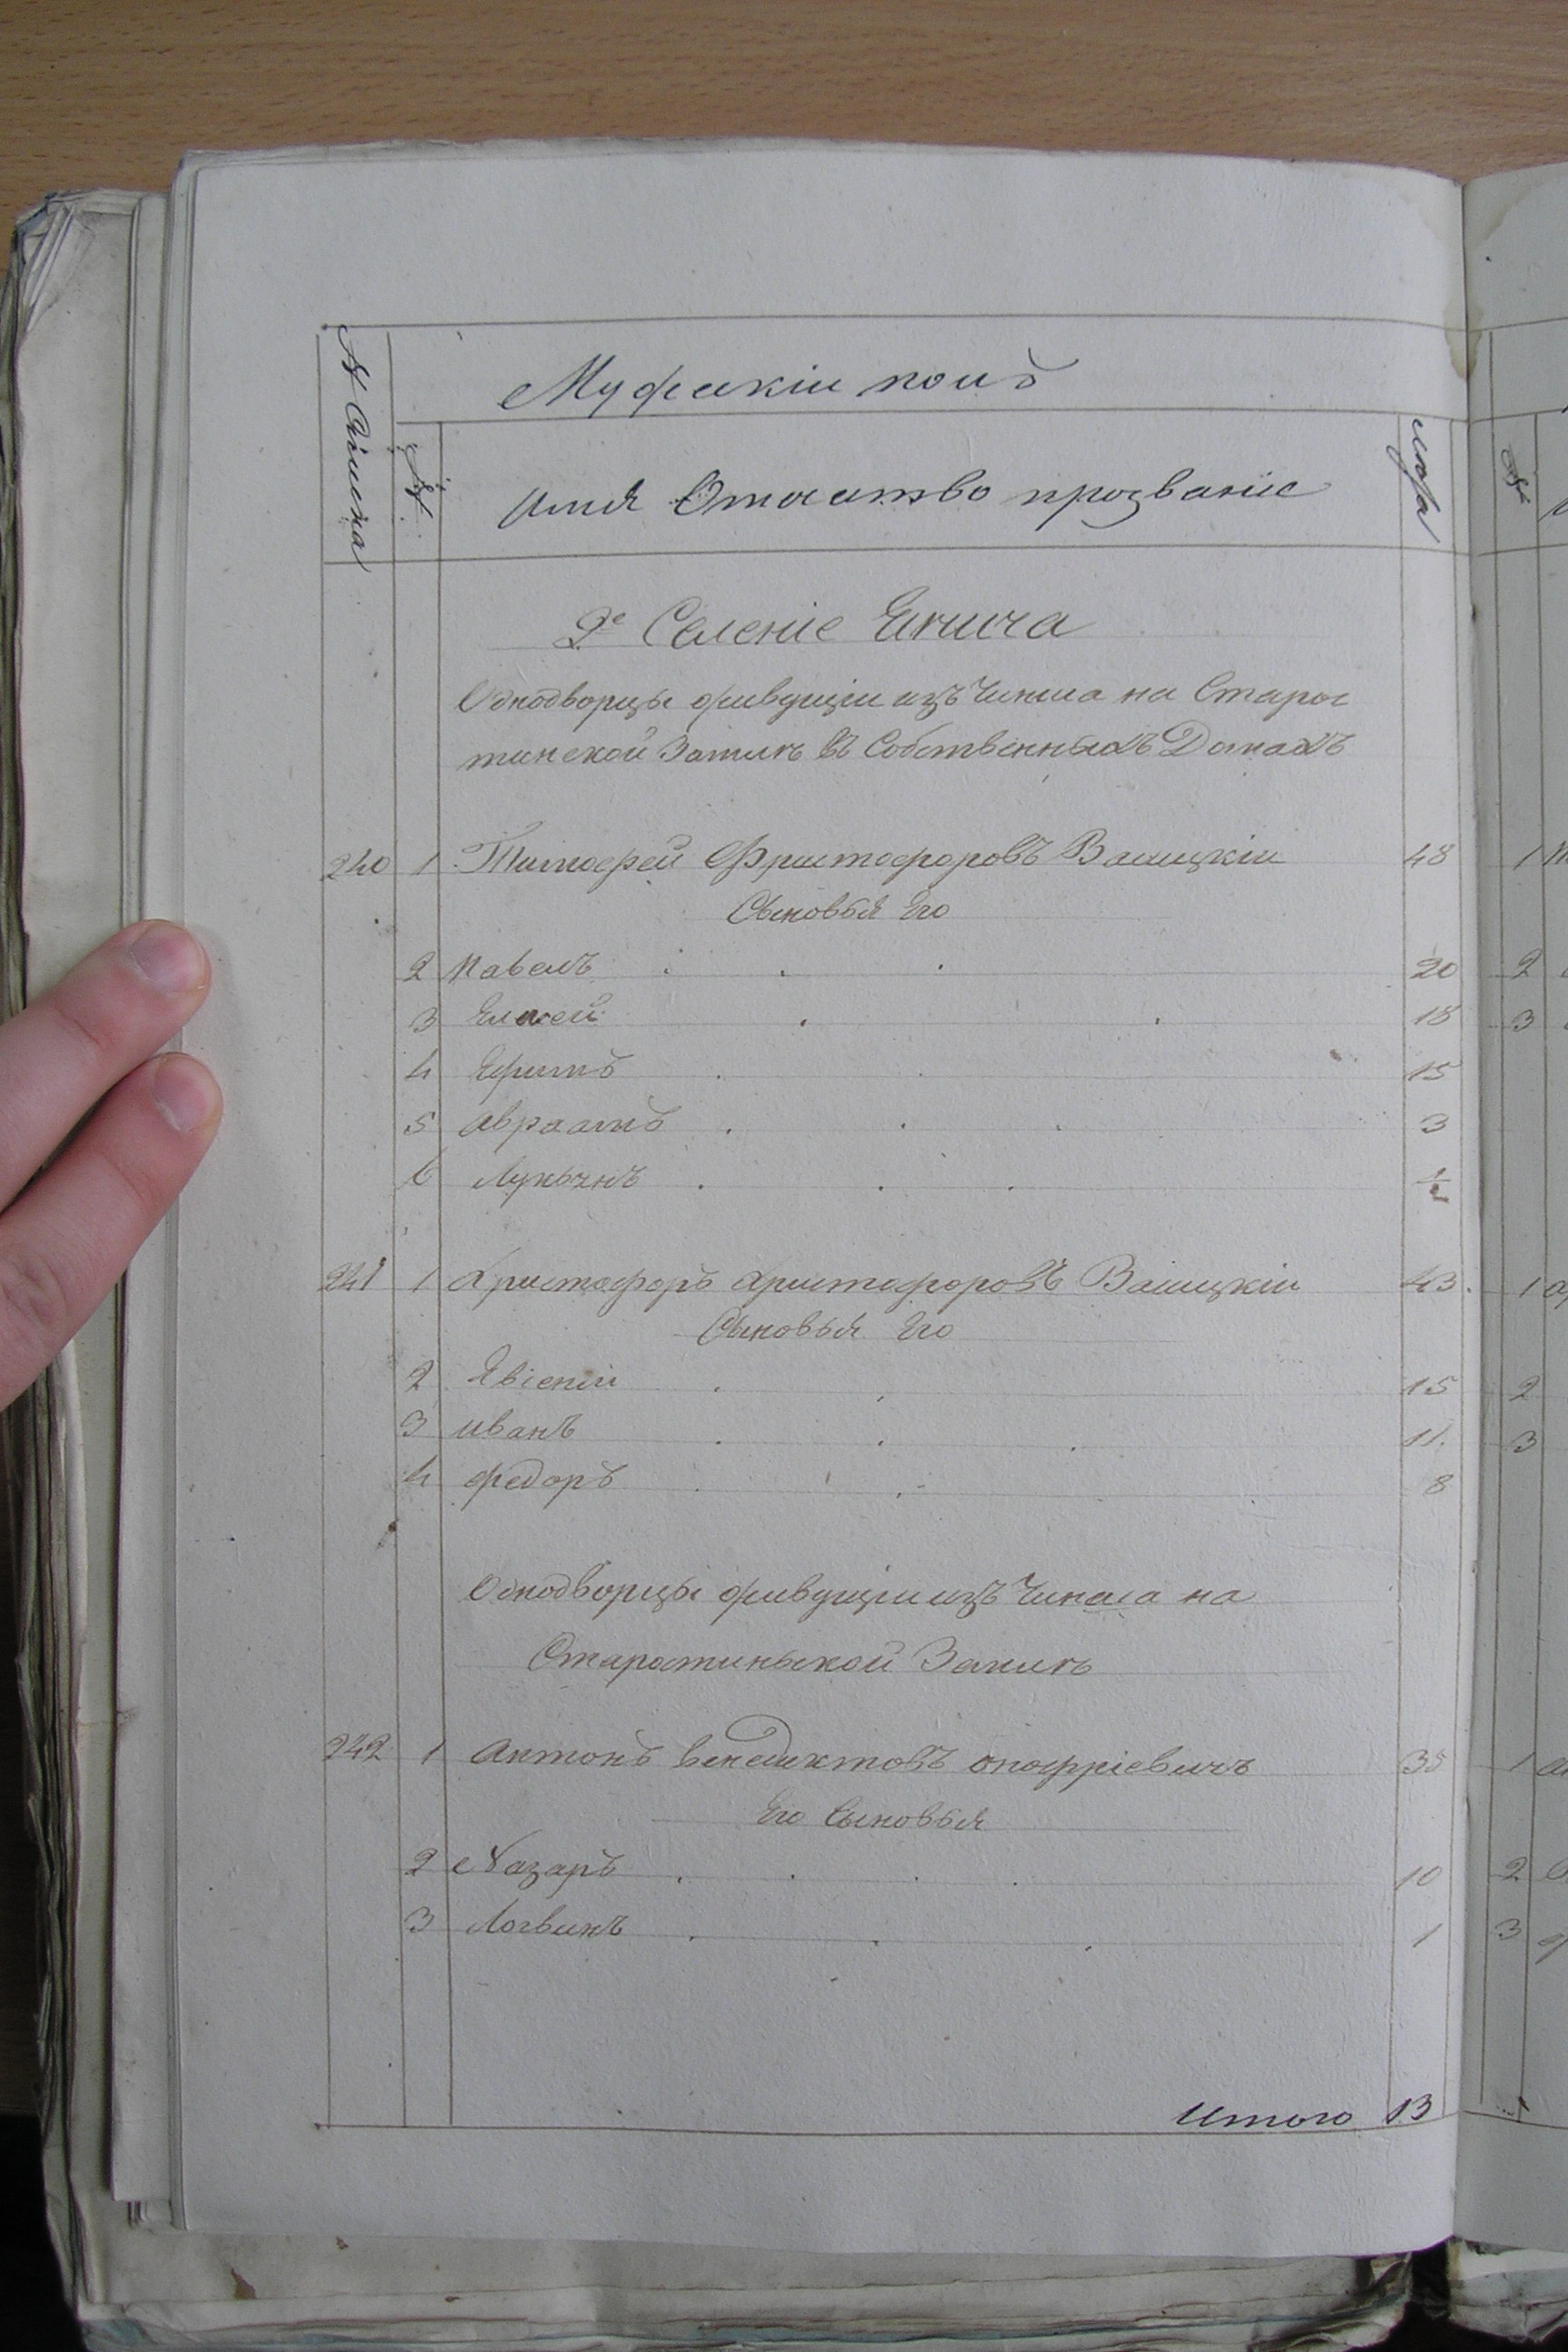 № Семена
Мужескіи полъ
№
имя Отчество прозваніе
лѣта
2е Селеніе
Однодворцы живущіи изъ Чинша на Старос
тинской Земли въ Собственныхъ Домахъ
240 1 Тимофей Христофоровъ Валицкіи 48
Сыновья Его
2 Павелъ 20
3 18
4 Ефимъ 15
5 Авраамъ 3
6 Лукьянъ 1/2
241 1 Христофоръ Христофоровъ Валицкіи 43
Сыновья Его
2 15
3 иванъ 11
4 федоръ 8
Однодворцы живущіи изъ Чинша на
Старостинской Земли
242 1 Антонъ венедиктовъ онофріевичъ 35
Его Сыновья
2 Назаръ 10
3 Логвинъ 1
Итого 13